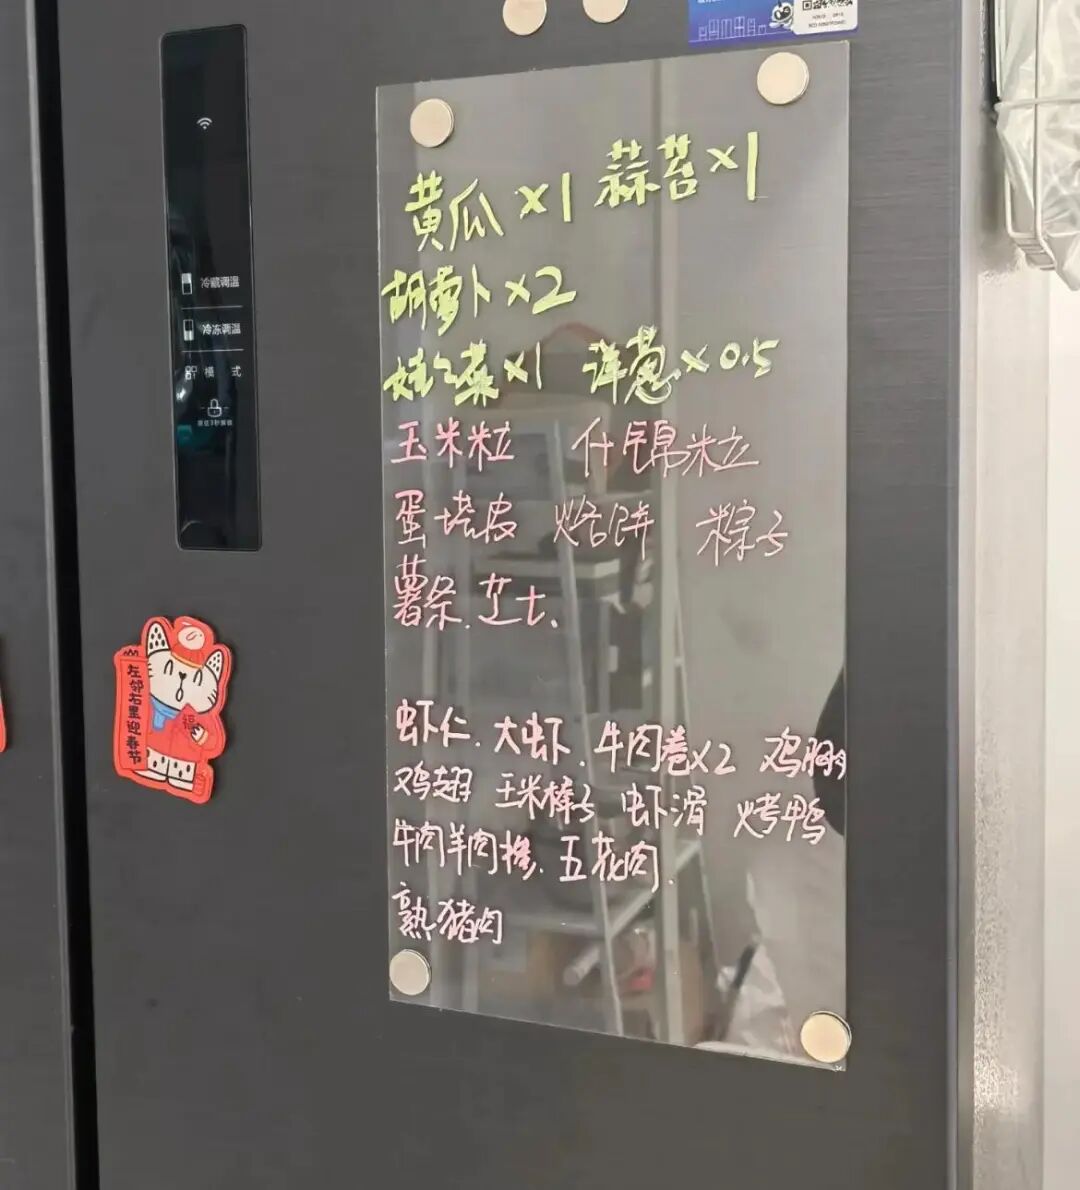 黄瓜×1 蒜苔×1
胡萝卜×2
娃娃菜×1 洋葱×0.5
玉米粒 什锦粒
蛋挞皮 烙饼 粽子
薯条.芝士.
虾仁.大虾.牛肉卷×2 鸡胸
鸡翅 玉米棒子 虾滑 烤鸭
牛肉羊肉掺.五花肉.
熟猪肉
冷藏调温
冷冻调温
模 式
左邻右里迎春节
福